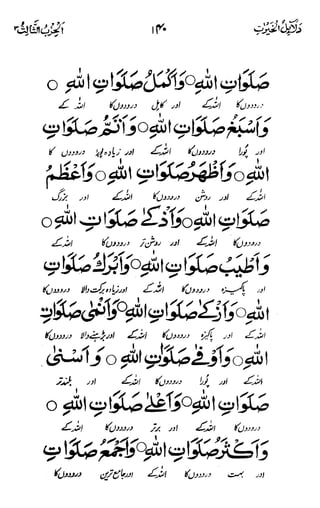 دَلَآئِلُ الْخَيْرٰتِ ۱۴۰ اَلْحِزْبُ الثَّالِثُ ۳
صَلَوَاتِ اللهِ ○ وَاَكْمَلُ صَلَوَاتِ اللهِ ○
درودوں کا اللہ کے اور کامل درودوں کا اللہ کے
وَاَسْبَغُ صَلَوَاتِ اللهِ ○ وَاَتَمُّ صَلَوَاتِ
اور پورا درودوں کا اللہ کے اور زیادہ پورا درودوں کا
اللهِ ○ وَاَظْهَرُ صَلَوَاتِ اللهِ ○ وَاَعْظَمُ
اللہ کے اور روشن درودوں کا اللہ کے اور بزرگ
صَلَوَاتِ اللهِ ○ وَاَذْكٰى صَلَوَاتِ اللهِ ○
درودوں کا اللہ کے اور روشن تر درودوں کا اللہ کے
وَاَطْيَبُ صَلَوَاتِ اللهِ ○ وَاَبْرَكُ صَلَوَاتِ
اور پاکیزہ درودوں کا اللہ کے اور زیادہ برکت والا درودوں کا
اللهِ ○ وَاَزْكٰى صَلَوَاتِ اللهِ ○ وَاَنْمٰى صَلَوَاتِ
اللہ کے اور پاکیزہ درودوں کا اللہ کے اور بڑہنے والا درودوں کا
اللهِ ○ وَاَوْفٰى صَلَوَاتِ اللهِ ○ وَاَسْنٰى
اللہ کے اور پورا درودوں کا اللہ کے اور بلندتر
صَلَوَاتِ اللهِ ○ وَاَعْلٰى صَلَوَاتِ اللهِ ○
درودوں کا اللہ کے اور برتر درودوں کا اللہ کے
وَاَكْثَرُ صَلَوَاتِ اللهِ ○ وَاَجْمَعُ صَلَوَاتِ
اور بہت درودوں کا اللہ کے اور جامع ترین درودوں کا